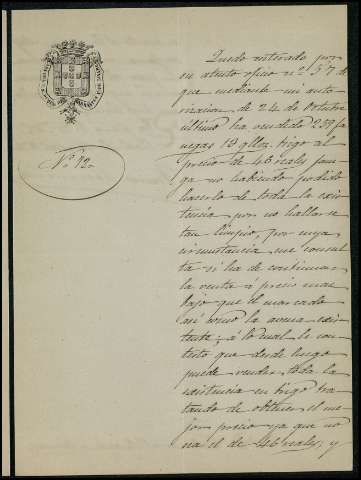 Nº 12.
Quedo enterado por
su atento oficio nº 57 de
que mediante mi auto-
rizacion de 24 de Octubre
último ha vendido 239 fa
negas 19 qllos. trigo al
precio de 46 reales fane
ga no habiendo podido
hacerlo de toda la exis-
tencia por no hallarse
tan limpio, por cuya
circunstancia me consul
ta si ha de continuar
la venta á precio mas
bajo que el marcado
así como la avena exis-
tente; á lo cual le con-
testo que desde luego
puede vender toda la
existencia en trigo tra-
tando de obtener el me
jor precio ya que no
sea el de 46 reales; y